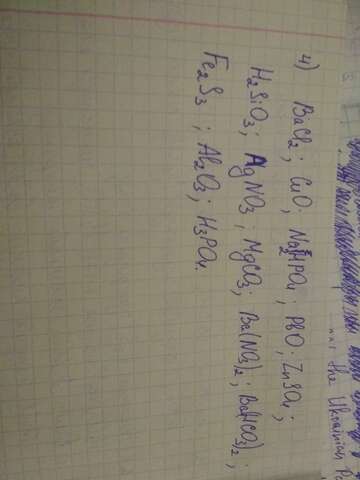 4) BaCl₂; CuO; Na₂HPO₄; PbO; ZnSO₄;
H₂SiO₃; AgNO₃; MgCO₃; Ba(NO₃)₂; Ba(HCO₃)₂;
Fe₂S₃; Al₂O₃; H₃PO₄.
the Ukrainian